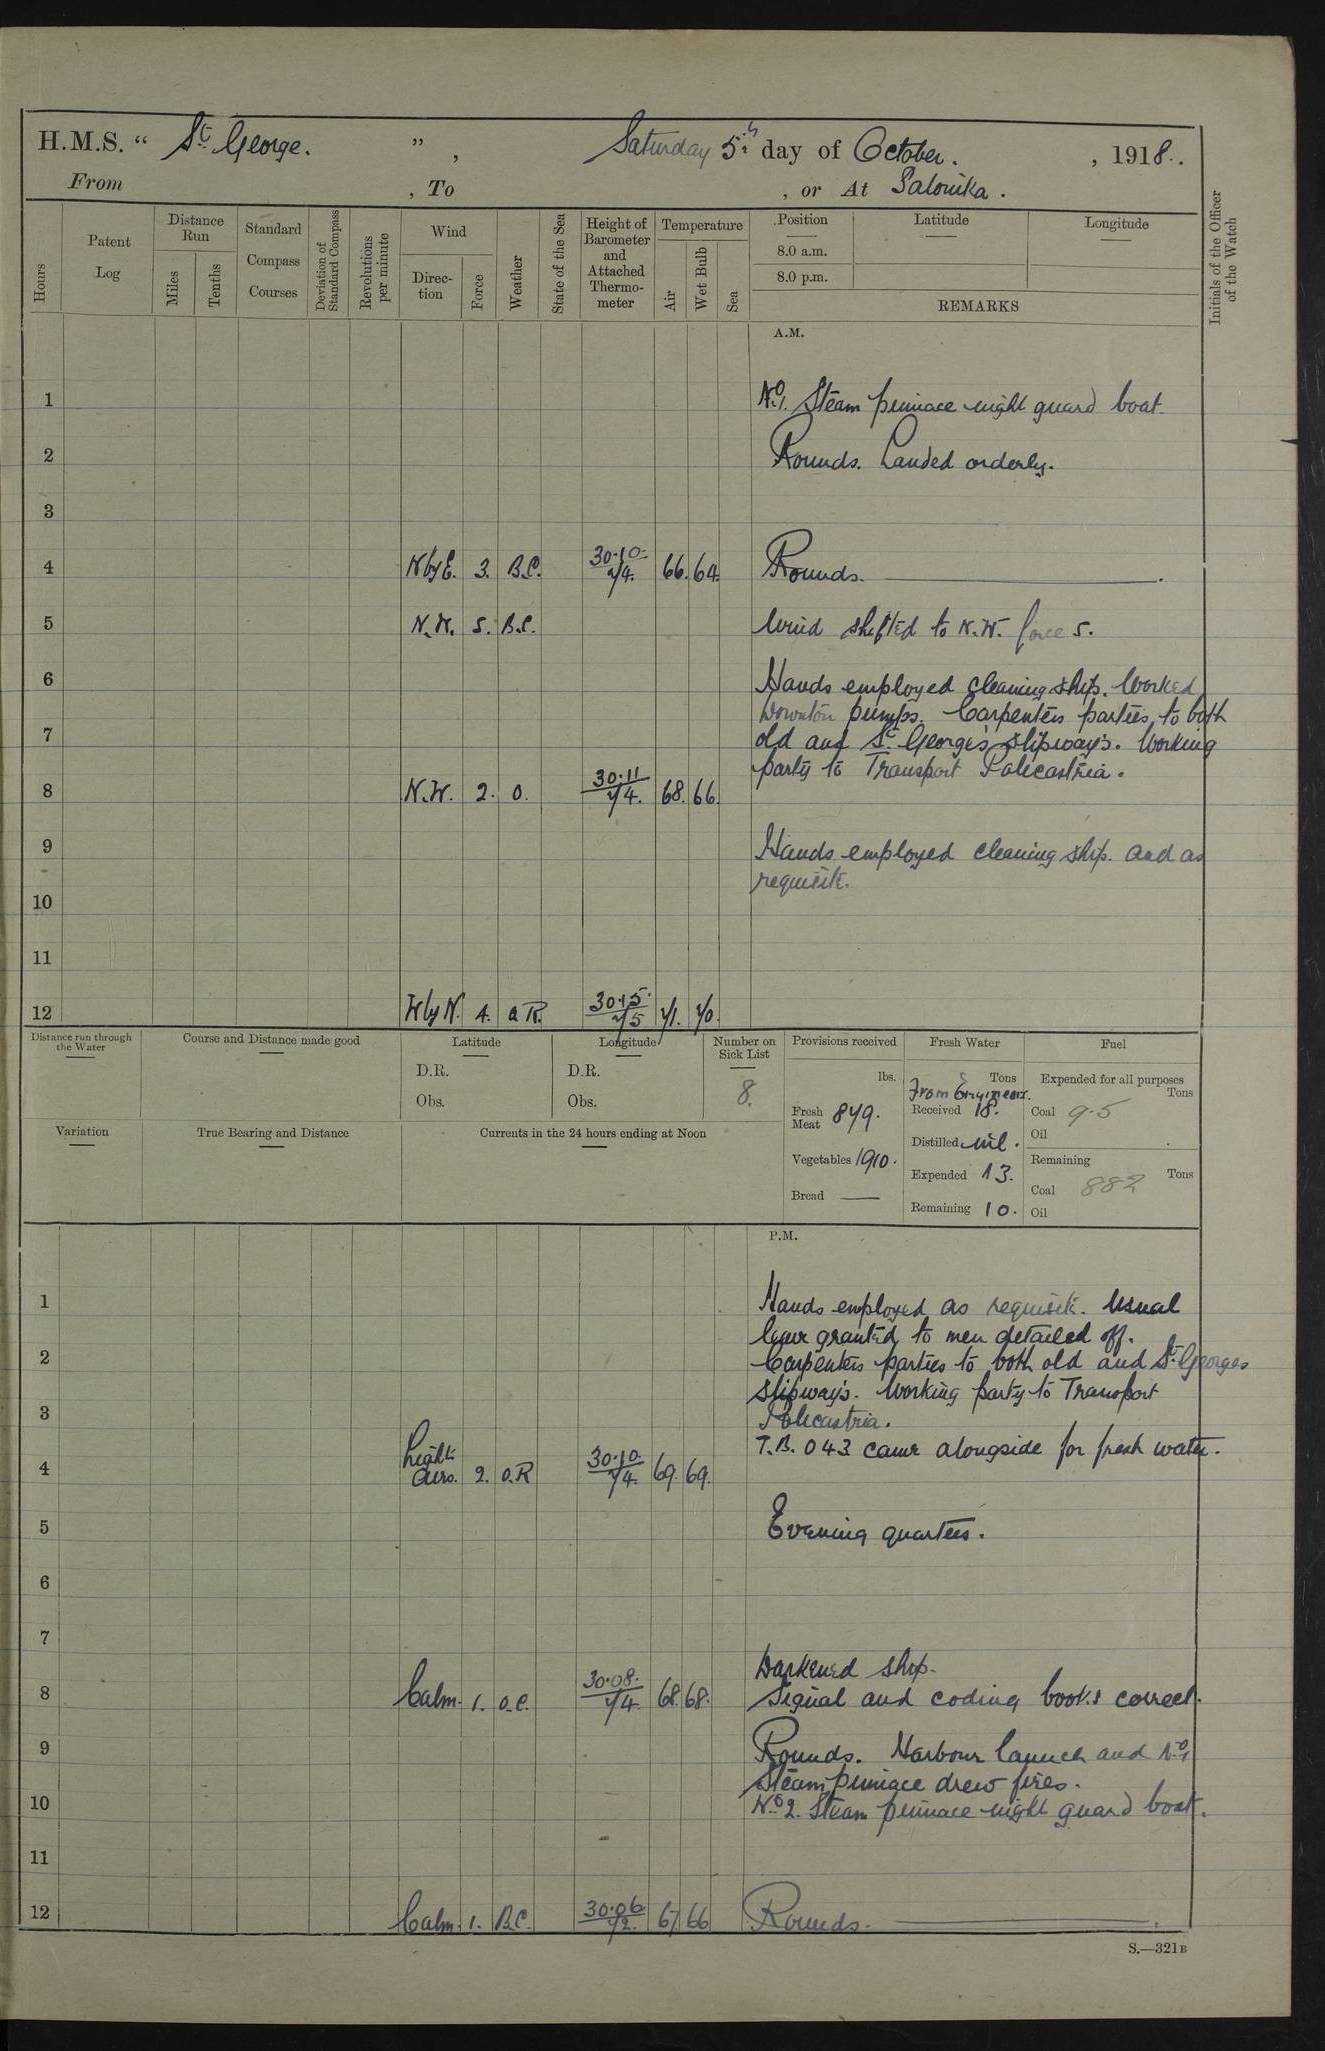 H.M.S. “ St George. ” , Saturday 5th day of October. , 1918.
From , To , or At Salonika.
Hours
Patent Log
Distance Run
Miles
Tenths
Standard Compass Courses
Deviation of Standard Compass
Revolutions per minute
Wind
Direction
Force
Weather
State of the Sea
Height of Barometer and Attached Thermometer
Temperature
Air
Wet Bulb
Sea
Position
8.0 a.m.
8.0 p.m.
Latitude
Longitude
REMARKS
Initials of the Officer of the Watch
A.M.
1 No. 1. Steam pinnace night guard boat.
2 Rounds. Landed orderly.
3
4 N by E. 3. B.C. 30.10. 74. 66. 64. Rounds.
5 N.W. 5. B.C. Wind shifted to N.W. force 5.
6 Hands employed cleaning ship. Worked
Downton pumps. Carpenters parties to both
7 old and St. George's slipway's. Working
party to Transport Policastria.
8 N.W. 2. O. 30.11 74. 68. 66.
9 Hands employed cleaning ship. and as
requisite.
10
11
12 W by N. 4. O R. 30.15. 75 71. 70.
Distance run through the Water
Course and Distance made good
Latitude
D.R.
Obs.
Longitude
D.R.
Obs.
Number on Sick List
8.
Provisions received
lbs.
Fresh Meat 879.
Vegetables 1910.
Bread —
Fresh Water
Tons
From Engineer.
Received 18.
Distilled nil.
Expended 13.
Remaining 10.
Fuel
Expended for all purposes
Tons
Coal 9.5
Oil
Remaining
Tons
Coal 882
Oil
Variation
True Bearing and Distance
Currents in the 24 hours ending at Noon
P.M.
1 Hands employed as requisite. Usual
leave granted to men detailed off.
2 Carpenters parties to both old and St. Georges
slipway's. Working party to Transport
3 Policastria.
T.B. 043 came alongside for fresh water.
4 Light airs. 2. O.R 30.10. 74. 69. 69.
5 Evening quarters.
6
7
Darkened ship.
8 Calm. 1. O.C. 30.08. 74. 68. 68. Signal and coding books correct.
9 Rounds. Harbour launch and No. 1
Steam pinnace drew fires.
10 No. 2. Steam pinnace night guard boat.
11
12 Calm. 1. B.C. 30.06 72. 67 66 Rounds.
S.—321B